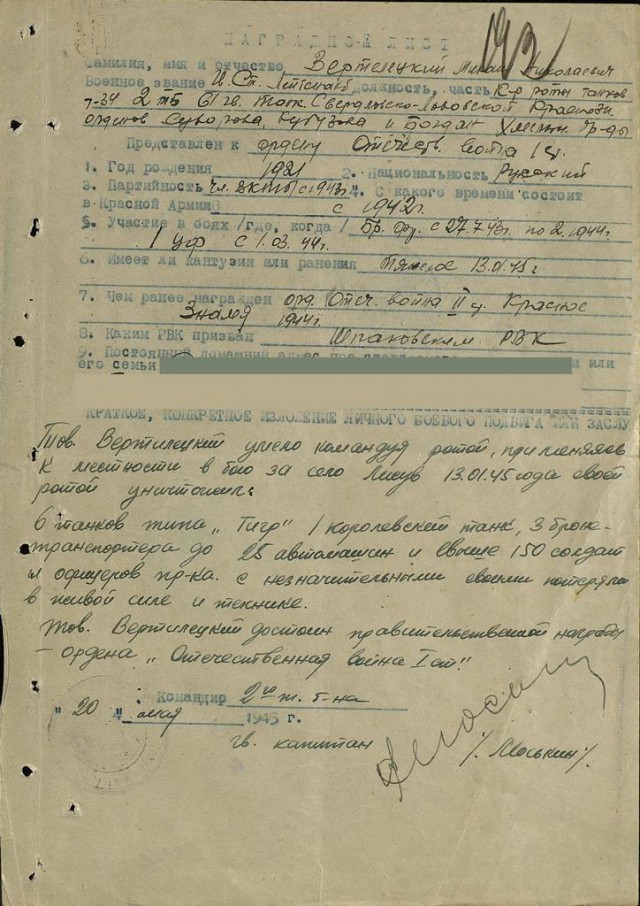 НАГРАДНОЙ ЛИСТ
Фамилия, имя и отчество Вертилецкий Михаил Николаевич
Военное звание Ст. Лейтенант должность, часть К-р роты танков
Т-34 2 тб 61 гв. танк. Свердловско-Львовской Краснозн.
орденов Суворова, Кутузова и Богдан Хмельн. бр-ды
Представлен к ордену Отечеств. война 1 ст.
1. Год рождения 1921 2. Национальность Русский
3. Партийность чл. ВКП(б) с 1943г. 4. С какого времени состоит
в Красной Армии с 1942г.
5. Участие в боях /где, когда/ Бр. фр. с 27.7.43г. по 2.1944г.
1 Укр с 1.03.44г.
6. Имеет ли кантузии или ранения тяжелое 13.01.45г
7. Чем ранее награжден орд. Отеч. война II ст. Красное
Знамя 1944г.
8. Каким РВК призван Шпаковским РВК
9. Постоянный домашний адрес и или
его семьи
КРАТКОЕ, КОНКРЕТНОЕ ИЗЛОЖЕНИЕ ЛИЧНОГО БОЕВОГО ПОДВИГА ИЛИ ЗАСЛУ
Тов. Вертилецкий умело командуя ротой, применяясь
к местности в бою за село Лисув 13.01.45 года своей
ротой уничтожил:
6 танков типа „Тигр" 1 королевский танк, 3 броне-
транспортера до 25 автомашин и свыше 150 солдат
и офицеров пр-ка. с незначительными своими потерями
в живой силе и технике.
Тов. Вертилецкий достоин правительственной награды
- ордена „Отечественная война I ст"
Командир 2го т. б-на
"20" мая 1945 г.
гв. капитан /Моськин/